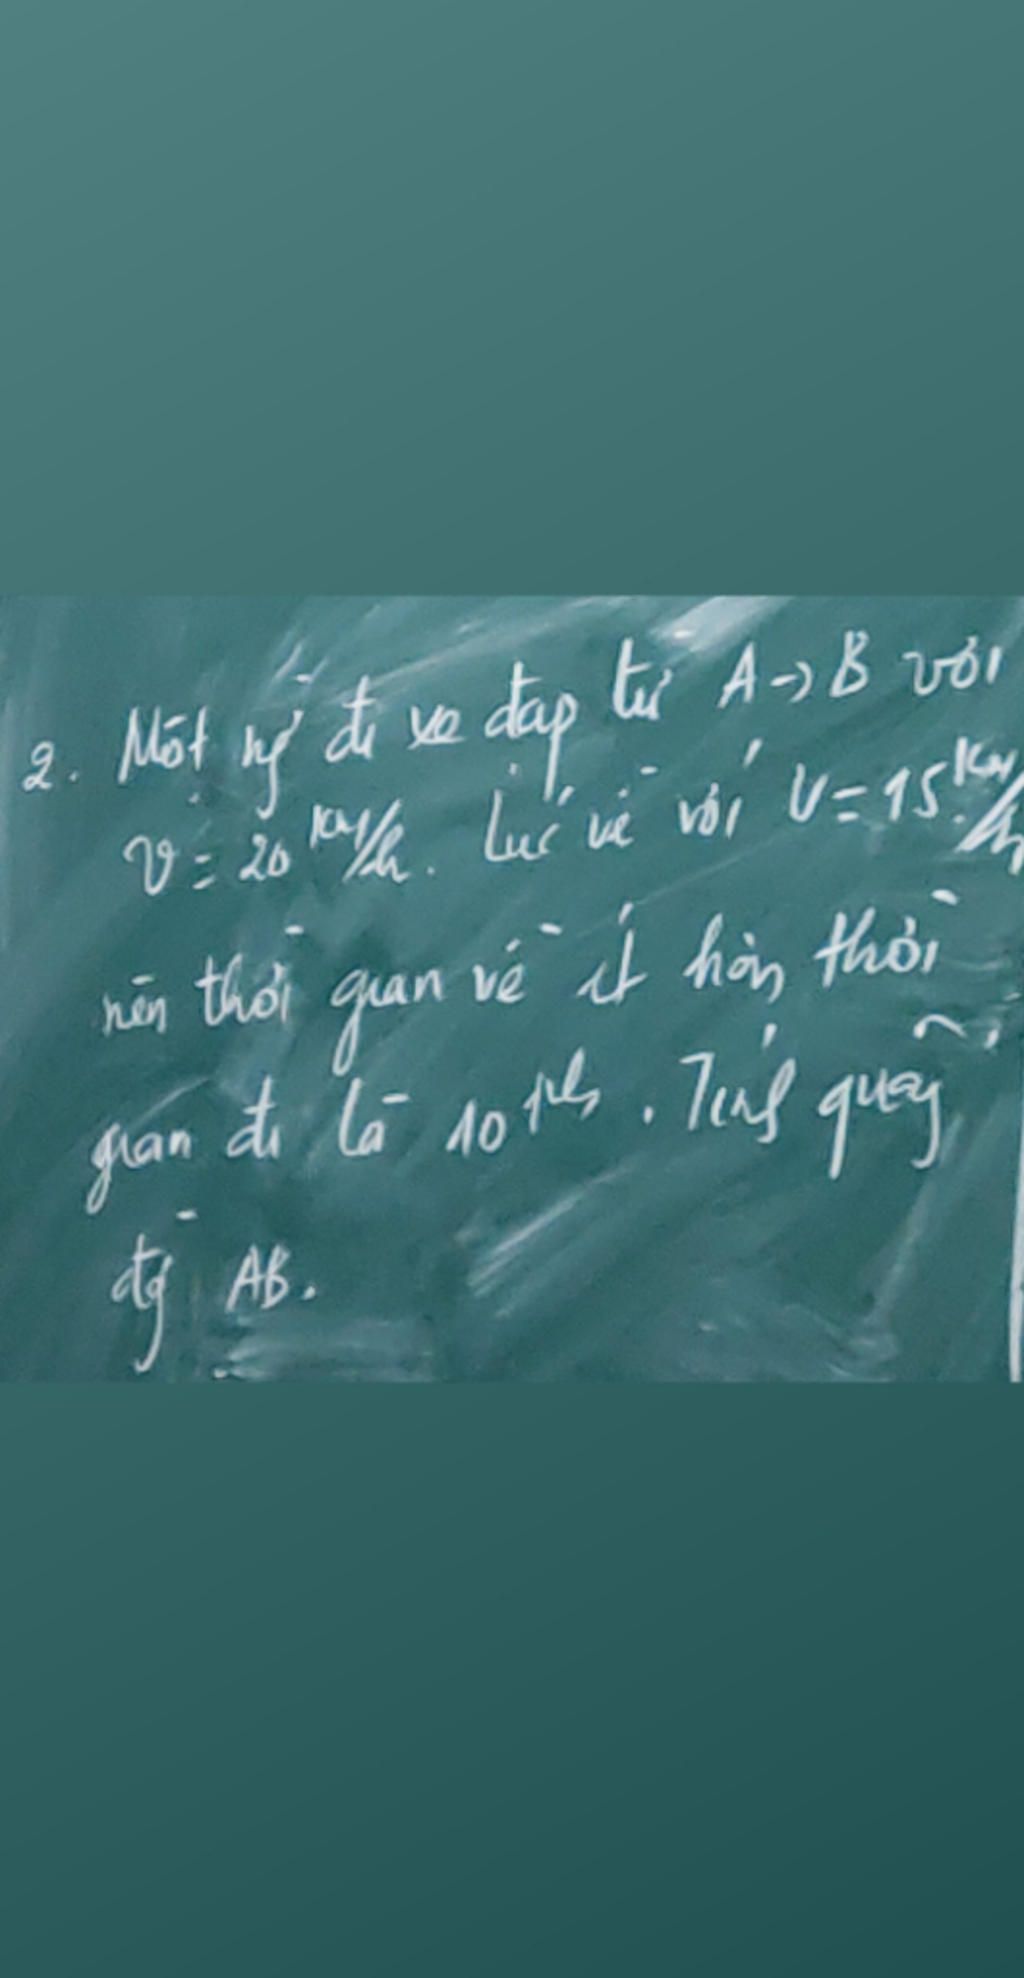 2. Một ng` đi xe đạp từ A → B với
v = 20 km/h. Lúc về với v = 15 km/h
nên thời gian về ít hơn thời
gian đi là 10 ph. Tính quãng
đg` AB.